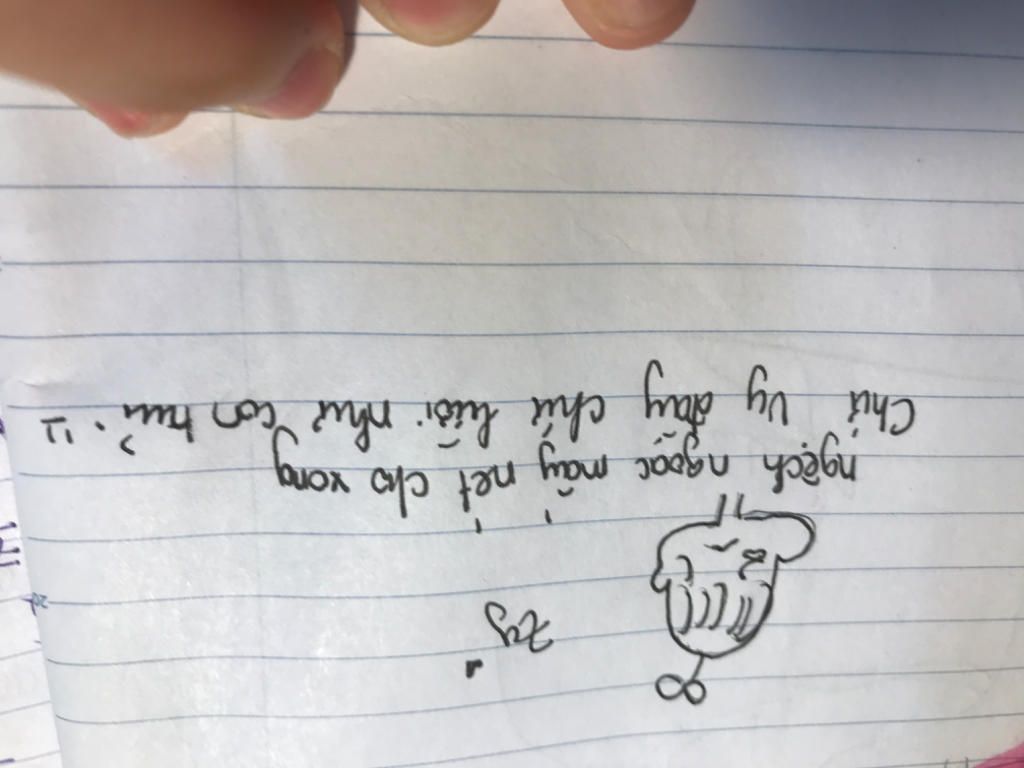 zy
ngệch ngoạc mấy nét cho xong
Chữ Vy đây chữ lười như con hủi. "